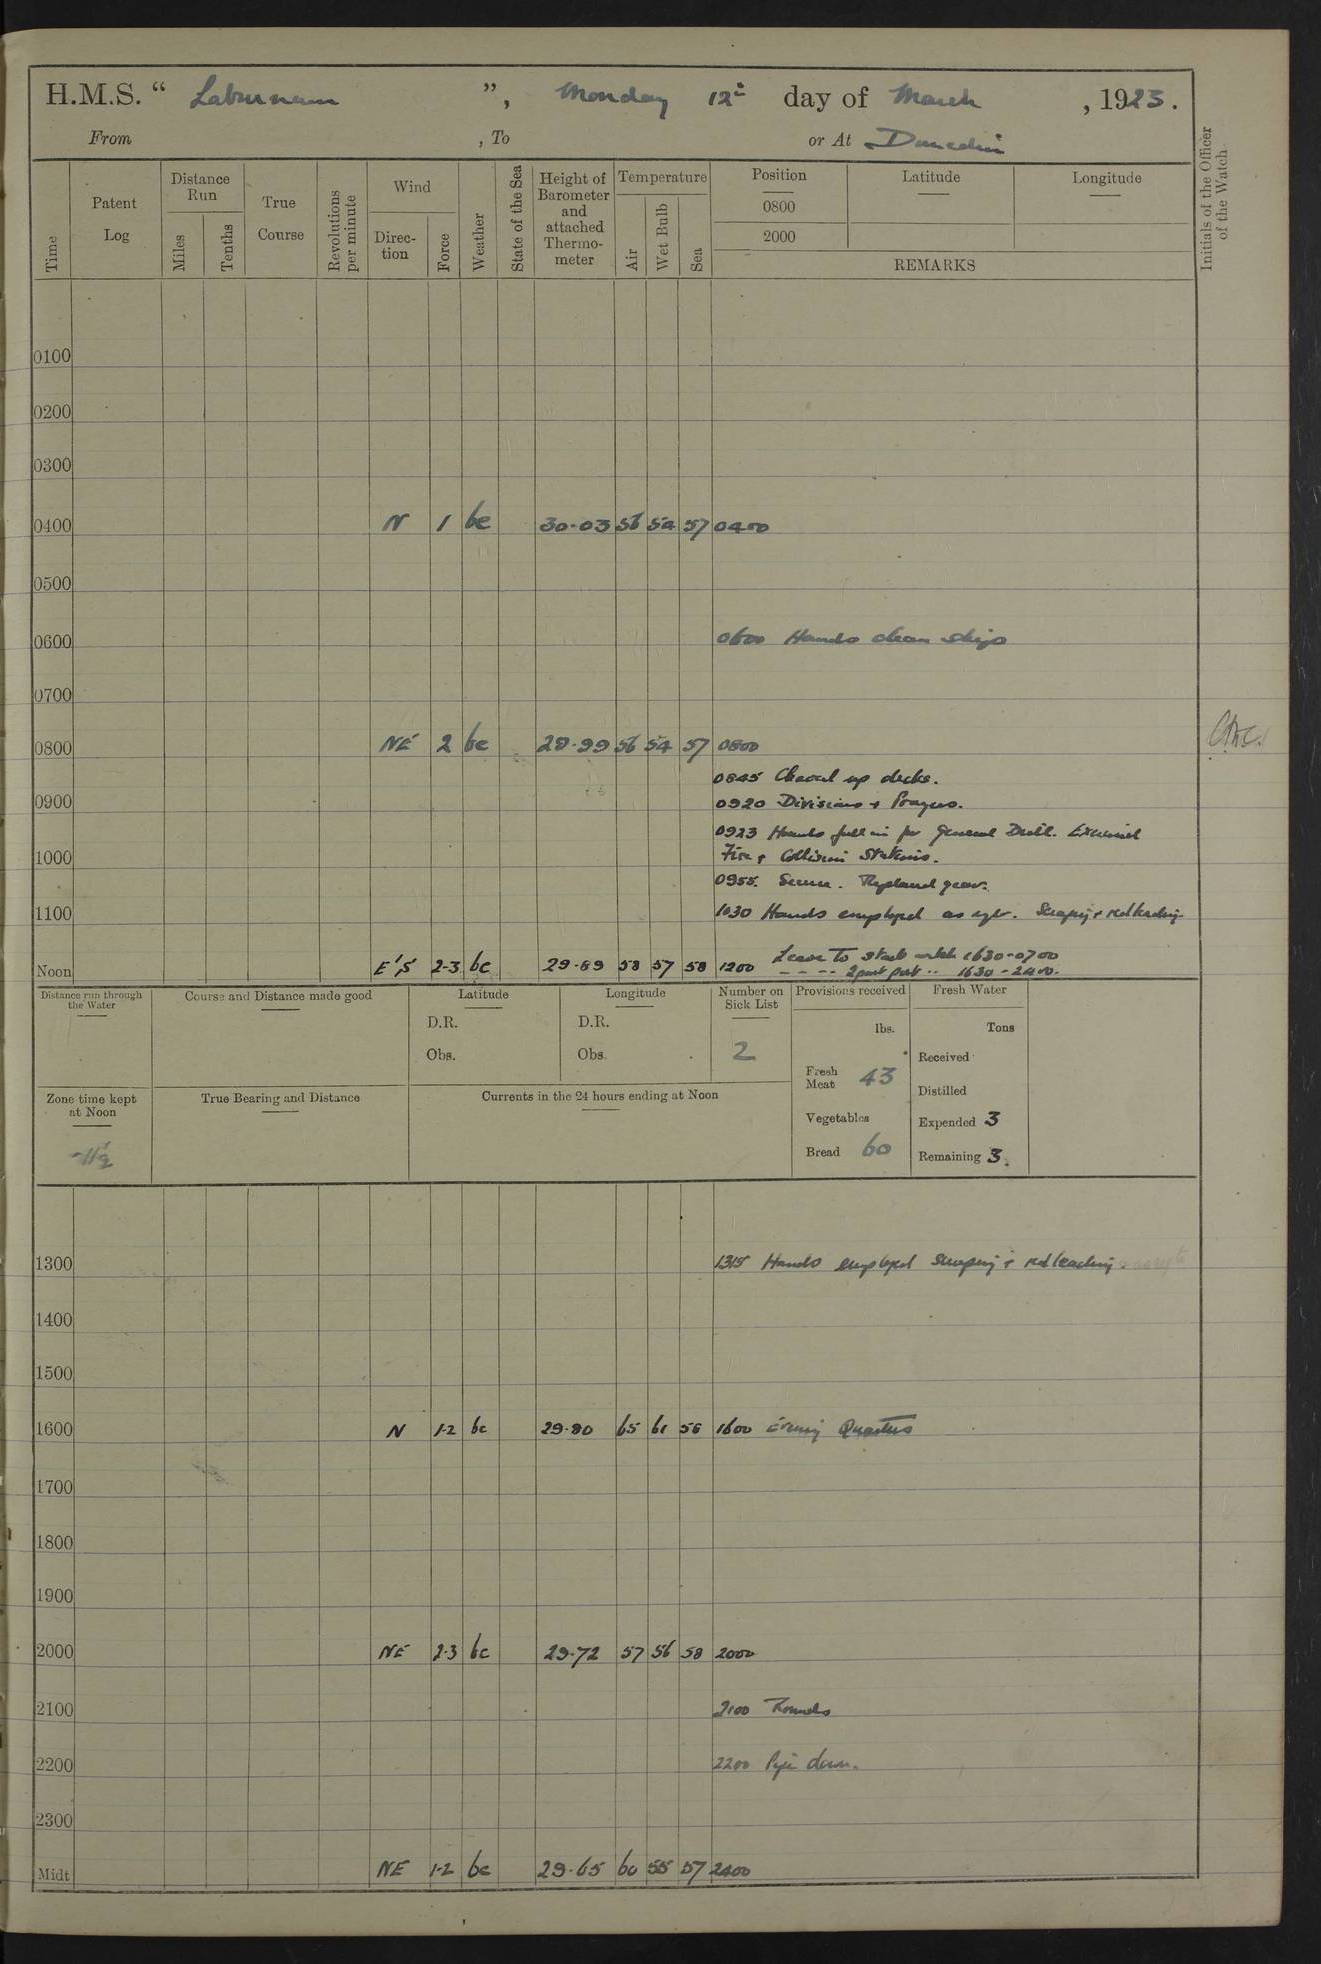 H.M.S. " Laburnum ", Monday 12th day of March, 1923.
From , To or At Dunedin
Time
Patent Log
Distance Run
Miles
Tenths
True Course
Revolutions per minute
Wind
Direc-tion
Force
Weather
State of the Sea
Height of Barometer and attached Thermo-meter
Temperature
Air
Wet Bulb
Sea
Position
Latitude
Longitude
0800
2000
REMARKS
Initials of the Officer of the Watch
0100
0200
0300
0400 N 1 bc 30·03 56 54 57 0400
0500
0600 0600 Hands clean ship
0700
0800 NE 2 bc 29·99 56 54 57 0800
0845 Cleared up decks.
0900 0920 Divisions & Prayers.
0923 Hands fell in for General Drill. Exercised
1000 Fire & Collision Stations.
0955. Secure. Replaced gear.
1100 1030 Hands employed as reqr. Scraping & redleading
Leave to Starb watch 1630-0700
Noon E'S 2-3 bc 29·89 58 57 58 1200 - - - - 2 part port " 1630 - 2400.
Distance run through the Water
Course and Distance made good
Latitude
D.R.
Obs.
Longitude
D.R.
Obs.
Number on Sick List
2
Provisions received
lbs.
Fresh Meat 43
Vegetables
Bread 60
Fresh Water
Tons
Received
Distilled
Expended 3
Remaining 3.
Zone time kept at Noon
-11½
True Bearing and Distance
Currents in the 24 hours ending at Noon
1300 1315 Hands employed scraping & redleading.
1400
1500
1600 N 1-2 bc 29·80 65 61 58 1600 Evening Quarters
1700
1800
1900
2000 NE 2-3 bc 29·72 57 56 58 2000
2100 2100 Rounds
2200 2200 Pipe down.
2300
Midt NE 1-2 bc 29·65 60 58 57 2400